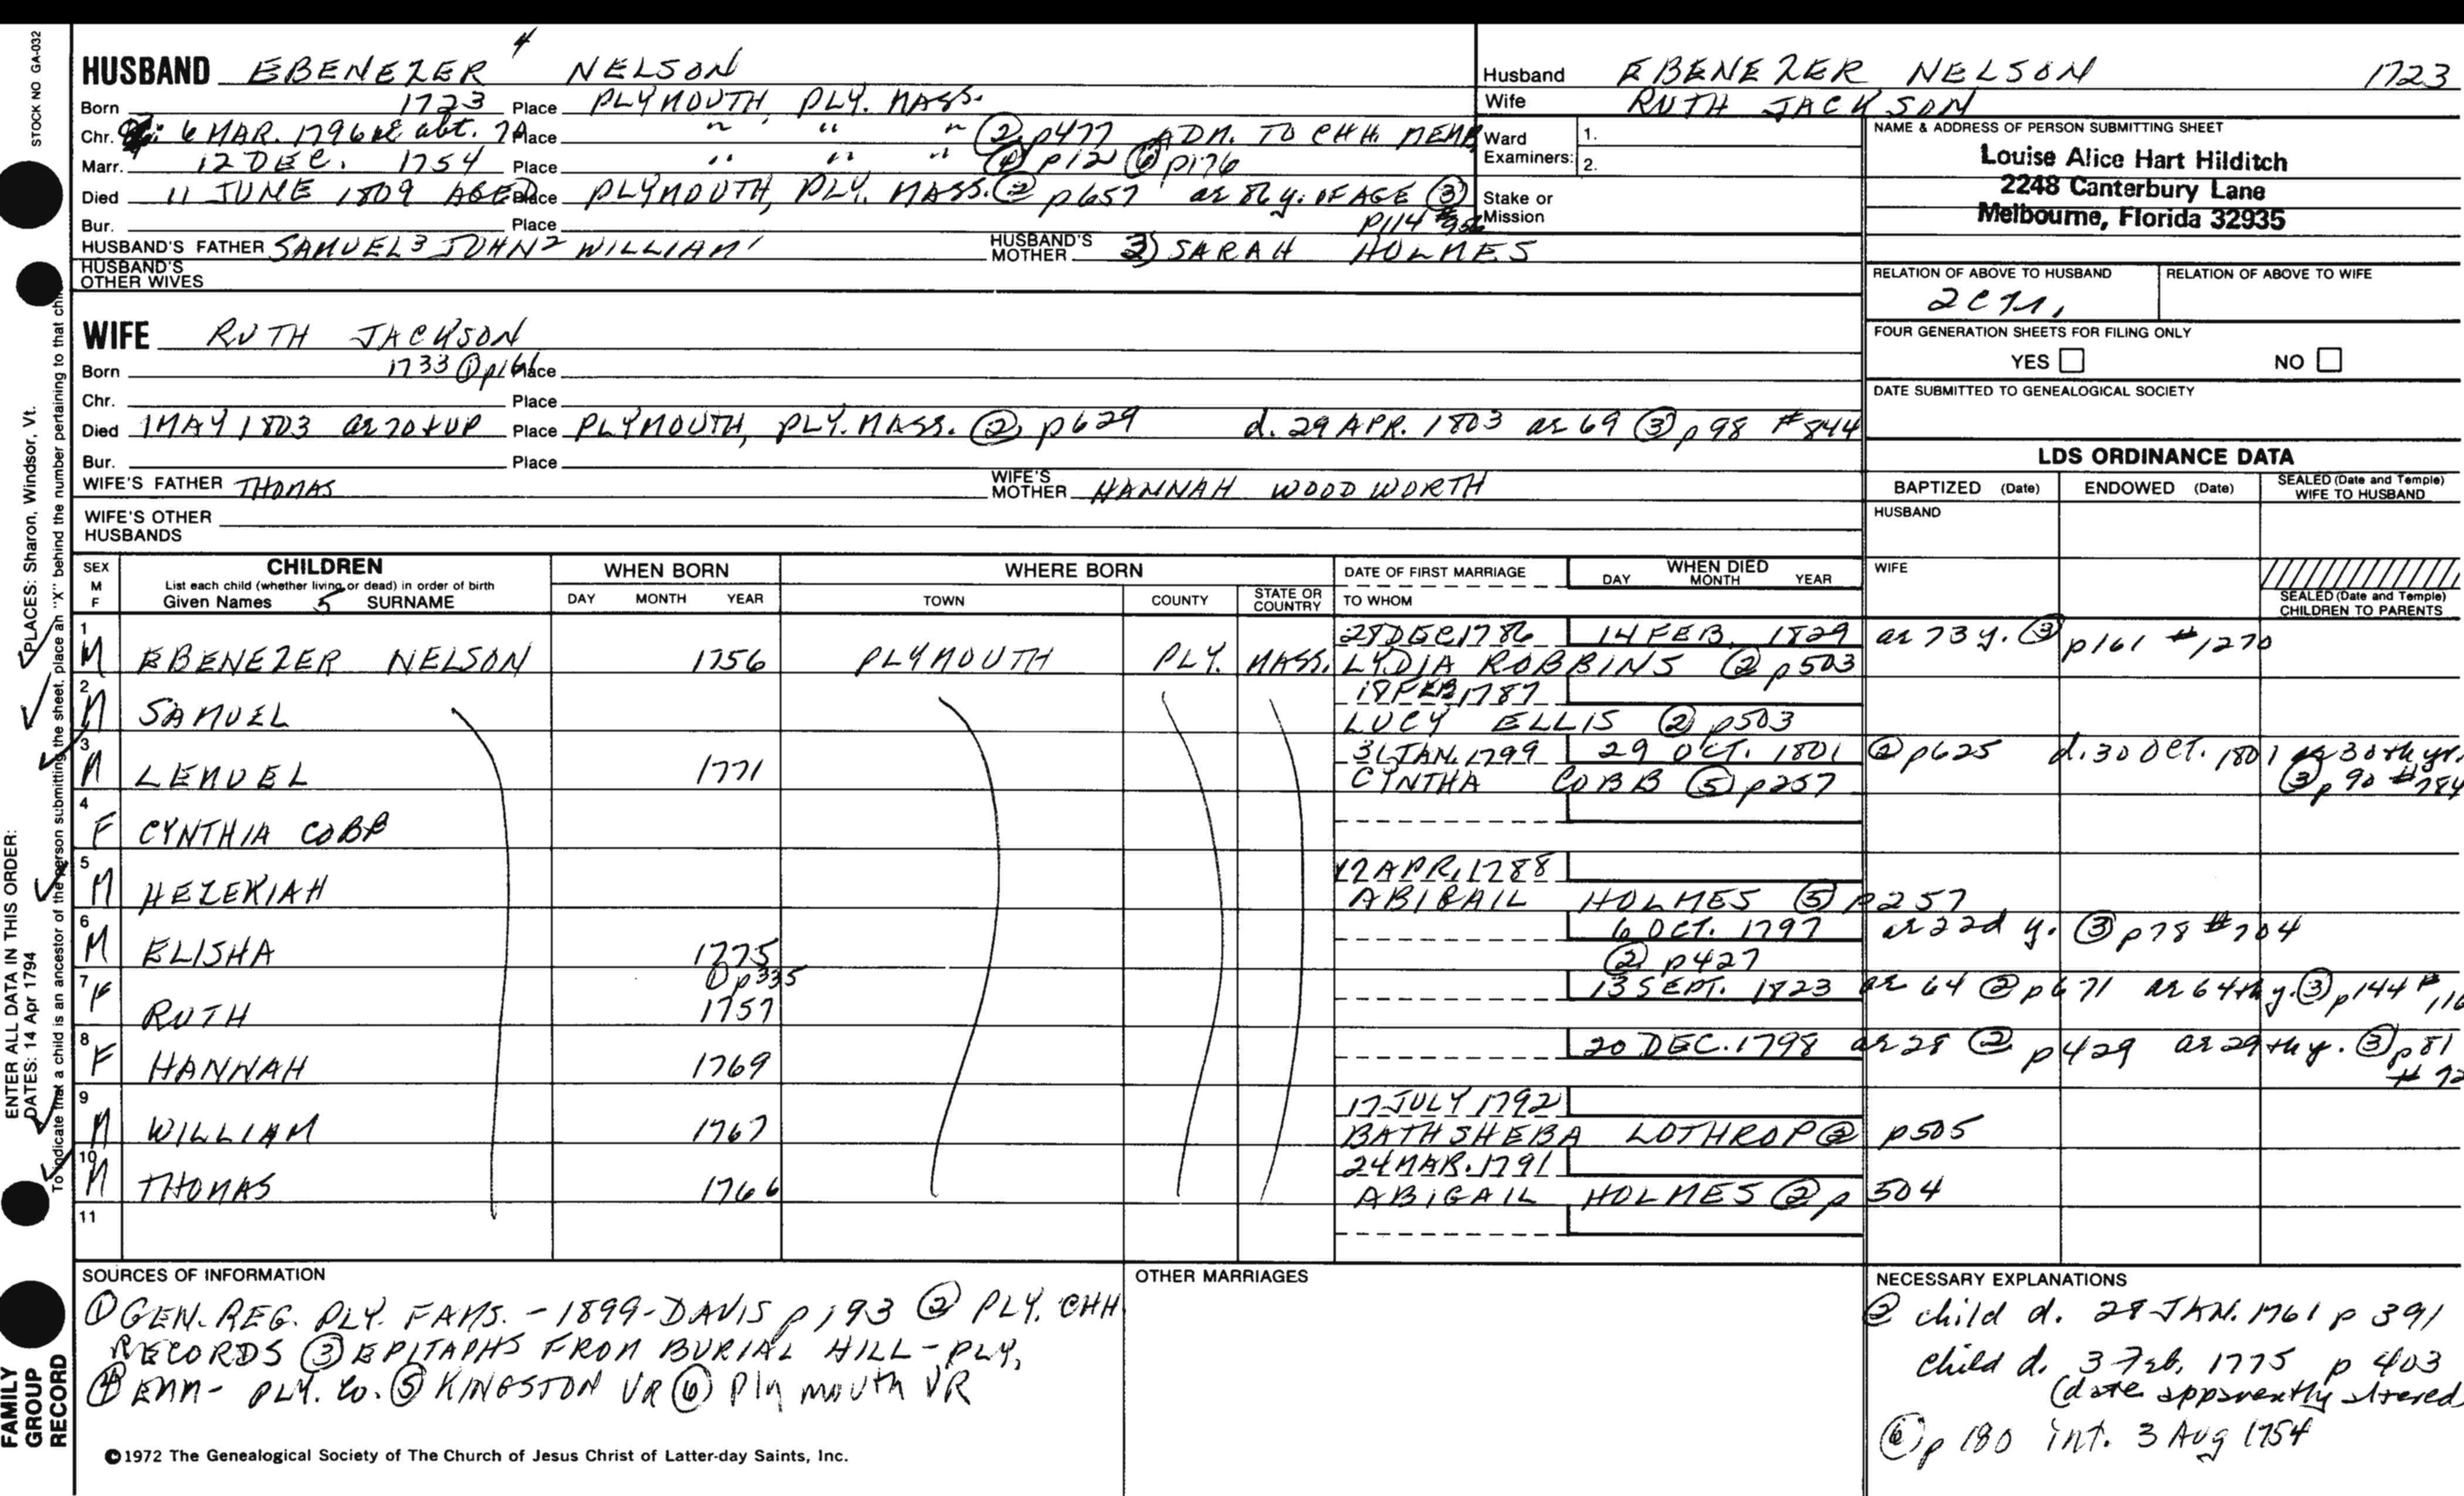 STOCK NO GA-032
HUSBAND EBENEZER 4 NELSON
Born 1723 Place PLYMOUTH, PLY. MASS.
Chr. 6 MAR. 1796 ae abt. 70 Place " " " ② p477 ADM. TO CHH. MEMB
Marr. 12 DEC. 1754 Place " " " ④ p12 ⑥ p176
Died 11 JUNE 1809 AGED Place PLYMOUTH, PLY. MASS. ② p657 ae 86 y. OF AGE ③
p114 #956
Bur. Place
HUSBAND'S FATHER SAMUEL 3 JOHN 2 WILLIAM 1 HUSBAND'S MOTHER 2) SARAH HOLMES
HUSBAND'S OTHER WIVES
WIFE RUTH JACKSON
Born 1733 ① p166 Place
Chr. Place
Died 1 MAY 1803 ae 70 & UP Place PLYMOUTH, PLY. MASS. ② p629 d. 29 APR. 1803 ae 69 ③ p 98 #844
Bur. Place
WIFE'S FATHER THOMAS WIFE'S MOTHER HANNAH WOODWORTH
WIFE'S OTHER HUSBANDS
Husband EBENEZER NELSON 1723
Wife RUTH JACKSON
Ward Examiners: 1.
2.
Stake or Mission
NAME & ADDRESS OF PERSON SUBMITTING SHEET
Louise Alice Hart Hilditch
2248 Canterbury Lane
Melbourne, Florida 32935
RELATION OF ABOVE TO HUSBAND RELATION OF ABOVE TO WIFE
FOUR GENERATION SHEETS FOR FILING ONLY
YES NO
DATE SUBMITTED TO GENEALOGICAL SOCIETY
LDS ORDINANCE DATA
BAPTIZED (Date) ENDOWED (Date) SEALED (Date and Temple) WIFE TO HUSBAND
HUSBAND
WIFE
SEALED (Date and Temple) CHILDREN TO PARENTS
SEX M F
CHILDREN
List each child (whether living or dead) in order of birth
Given Names 5 SURNAME
WHEN BORN
DAY MONTH YEAR
WHERE BORN
TOWN COUNTY STATE OR COUNTRY
DATE OF FIRST MARRIAGE
TO WHOM
WHEN DIED
DAY MONTH YEAR
1 28 DEC 1786 14 FEB. 1829 ae 73 y. ③ p161 #1270
M EBENEZER NELSON 1756 PLYMOUTH PLY. MASS. LYDIA ROBBINS ② p503
2 18 FEB 1787
M SAMUEL LUCY ELLIS ② p503
3 31 JAN. 1799 29 OCT. 1801 ② p625 d. 30 OCT. 1801 ae 30th yr.
M LEMUEL 1771 CYNTHA COBB ⑤ p257 ③ p 90 #784
4
F CYNTHIA COBB
5 12 APR. 1788
M HEZEKIAH ABIGAIL HOLMES ⑤ p257
6 6 OCT. 1797 ae 22d y. ③ p78 #704
M ELISHA 1775 ② p427
7 ① p335 13 SEPT. 1823 ae 64 ② p671 ae 64th y. ③ p144 #
F RUTH 1757
8 20 DEC. 1798 ae 28 ② p429 ae 29th y. ③ p81
F HANNAH 1769
9 17 JULY 1792
M WILLIAM 1767 BATHSHEBA LOTHROP ② p505
10 24 MAR. 1791
M THOMAS 1766 ABIGAIL HOLMES ② p 504
11
SOURCES OF INFORMATION
① GEN. REG. PLY. FAMS. - 1899 - DAVIS p 193 ② PLY. CHH
RECORDS ③ EPITAPHS FROM BURIAL HILL - PLY,
④ EMM - PLY. Co. ⑤ KINGSTON VR ⑥ Plymouth VR
©1972 The Genealogical Society of The Church of Jesus Christ of Latter-day Saints, Inc.
OTHER MARRIAGES
NECESSARY EXPLANATIONS
② child d. 28 JAN. 1761 p 391
child d. 3 Feb. 1775 p 403
(date apparently altered)
⑥ p 180 int. 3 Aug 1754
FAMILY GROUP RECORD
ENTER ALL DATA IN THIS ORDER:
DATES: 14 Apr 1794
PLACES: Sharon, Windsor, Vt.
To indicate that a child is an ancestor of the person submitting the sheet, place an "X" behind the number pertaining to that child